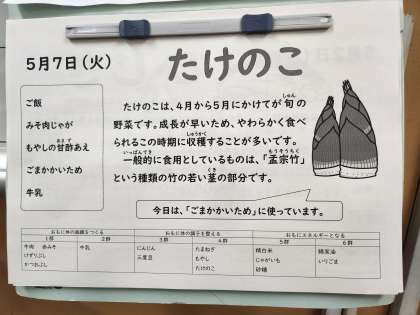 5月7日(火)
たけのこ
ご飯
みそ肉じゃが
もやしの甘酢あえ
ごまかかいため
牛乳
たけのこは、4月から5月にかけてが旬の
野菜です。成長が早いため、やわらかく食べ
られるこの時期に収穫することが多いです。
一般的に食用としているものは、「孟宗竹」
という種類の竹の若い茎の部分です。
今日は、「ごまかかいため」に使っています。
おもに体の組織をつくる
おもに体の調子を整える
おもにエネルギーとなる
1群 2群 3群 4群 5群 6群
牛肉 赤みそ 牛乳 にんじん たまねぎ 精白米
けずりぶし 三度豆 もやし じゃがいも いりごま
かつおぶし たけのこ 砂糖